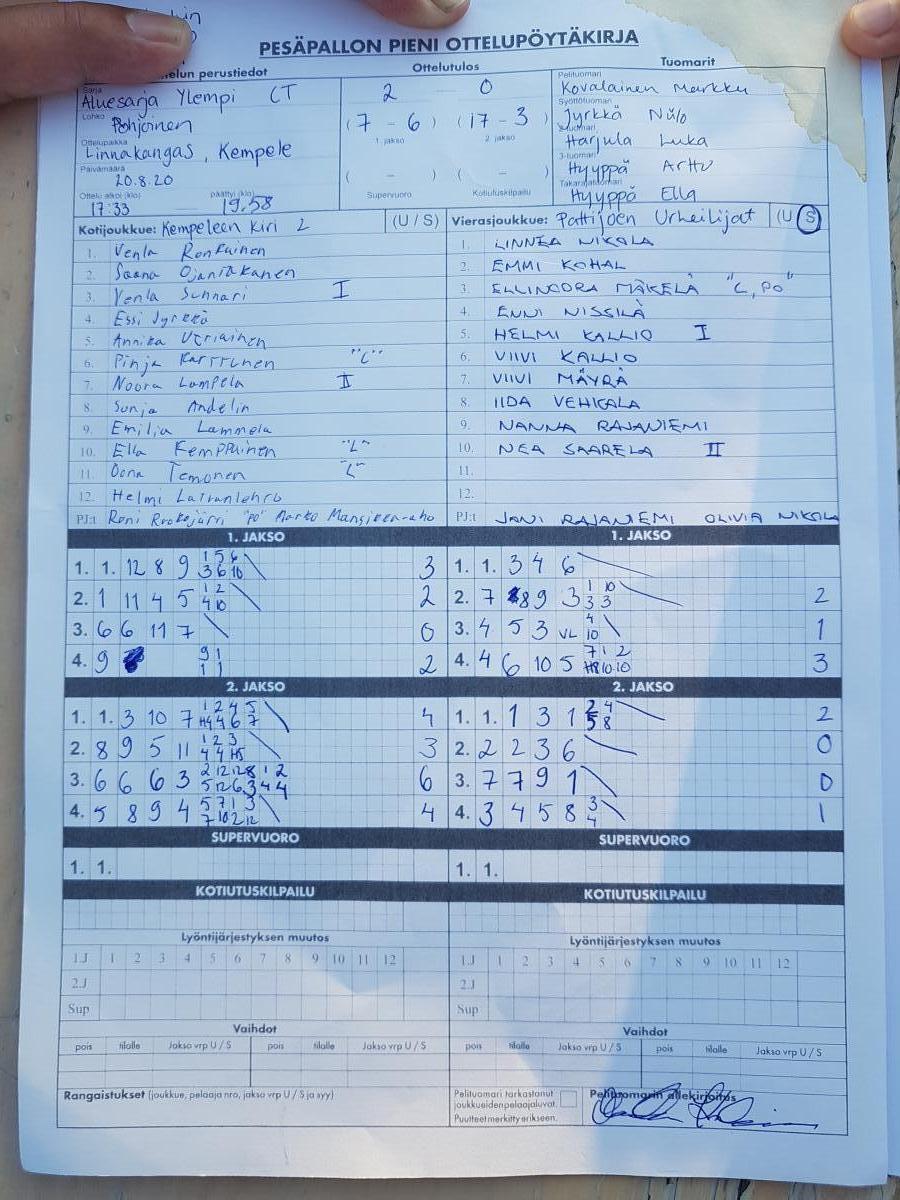 PESÄPALLON PIENI OTTELUPÖYTÄKIRJA
elun perustiedot
Ottelutulos
Tuomarit
Sarja
Aluesarja Ylempi CT
Lohko
Pohjoinen
Ottelupaikka
Linnakangas, Kempele
Päivämäärä
20.8.20
Ottelu alkoi (klo)
päättyi (klo)
17:33
19.58
2 0
(7 - 6) (17 - 3)
1. jakso 2. jakso
( - ) ( - )
Supervuoro Kotiutuskilpailu
Pelituomari
Kovalainen Markku
Syöttötuomari
Jyrkkä Niilo
2-tuomari
Harjula Luka
3-tuomari
Hyyppä Arttu
Takarajatuomari
Hyyppä Ella
Kotijoukkue: Kempeleen Kiri 2 (U / S)
1. Venla Ronkainen
2. Saana
3. Venla Sunnari I
4. Essi Jyrkkä
5. Annika
6. Pinja "C"
7. Noora Lampela II
8. Sonja Andelin
9. Emilia Lammela
10. Ella Kemppainen "L"
11. Oona Temonen "L"
12. Helmi
PJ:t Roni "PO" Marko
Vierasjoukkue: Pattijoen Urheilijat (U / S)
1. LINNEA NIKOLA
2. EMMI KOHAL
3. ELLINOORA MÄKELÄ "C, PO"
4. ENNI NISSILÄ
5. HELMI KALLIO I
6. VIIVI KALLIO
7. VIIVI MÄYRÄ
8. IIDA VEHKALA
9. NANNA RAJANIEMI
10. NEA SAARELA II
11.
12.
PJ:t JANI RAJANIEMI OLIVIA NIKOLA
1. JAKSO
1. 1. 12 8 9 1 5 6 3
3 6 10
2. 1 11 4 5 1 2 2
4 10
3. 6 6 11 7 0
4. 9 9 1 2
1 1
2. JAKSO
1. 1. 3 10 7 1 2 4 5 4
H4 4 6 7
2. 8 9 5 11 1 2 3 3
4 4 H5
3. 6 6 6 3 2 12 12 8 1 2 6
5 12 6 3 4 4
4. 5 8 9 4 5 7 1 3 4
7 10 2 12
SUPERVUORO
1. 1.
KOTIUTUSKILPAILU
1. JAKSO
1. 1. 3 4 6
2. 7 8 9 3 1 10 2
3 3
3. 4 5 3 VL 4 1
10
4. 4 6 10 5 7 1 2 3
H8 10 10
2. JAKSO
1. 1. 1 3 1 2 4 2
5 8
2. 2 2 3 6 0
3. 7 7 9 1 0
4. 3 4 5 8 3 1
4
SUPERVUORO
1. 1.
KOTIUTUSKILPAILU
Lyöntijärjestyksen muutos
1.J 1 2 3 4 5 6 7 8 9 10 11 12
2.J
Sup
Lyöntijärjestyksen muutos
1.J 1 2 3 4 5 6 7 8 9 10 11 12
2.J
Sup
Vaihdot
pois tilalle Jakso vrp U / S pois tilalle Jakso vrp U / S
Vaihdot
pois tilalle Jakso vrp U / S pois tilalle Jakso vrp U / S
Rangaistukset (joukkue, pelaaja nro, jakso vrp U / S ja syy)
Pelituomari tarkastanut
joukkueiden pelaajaluvat.
Puutteet merkitty erikseen.
Pelituomarin allekirjoitus